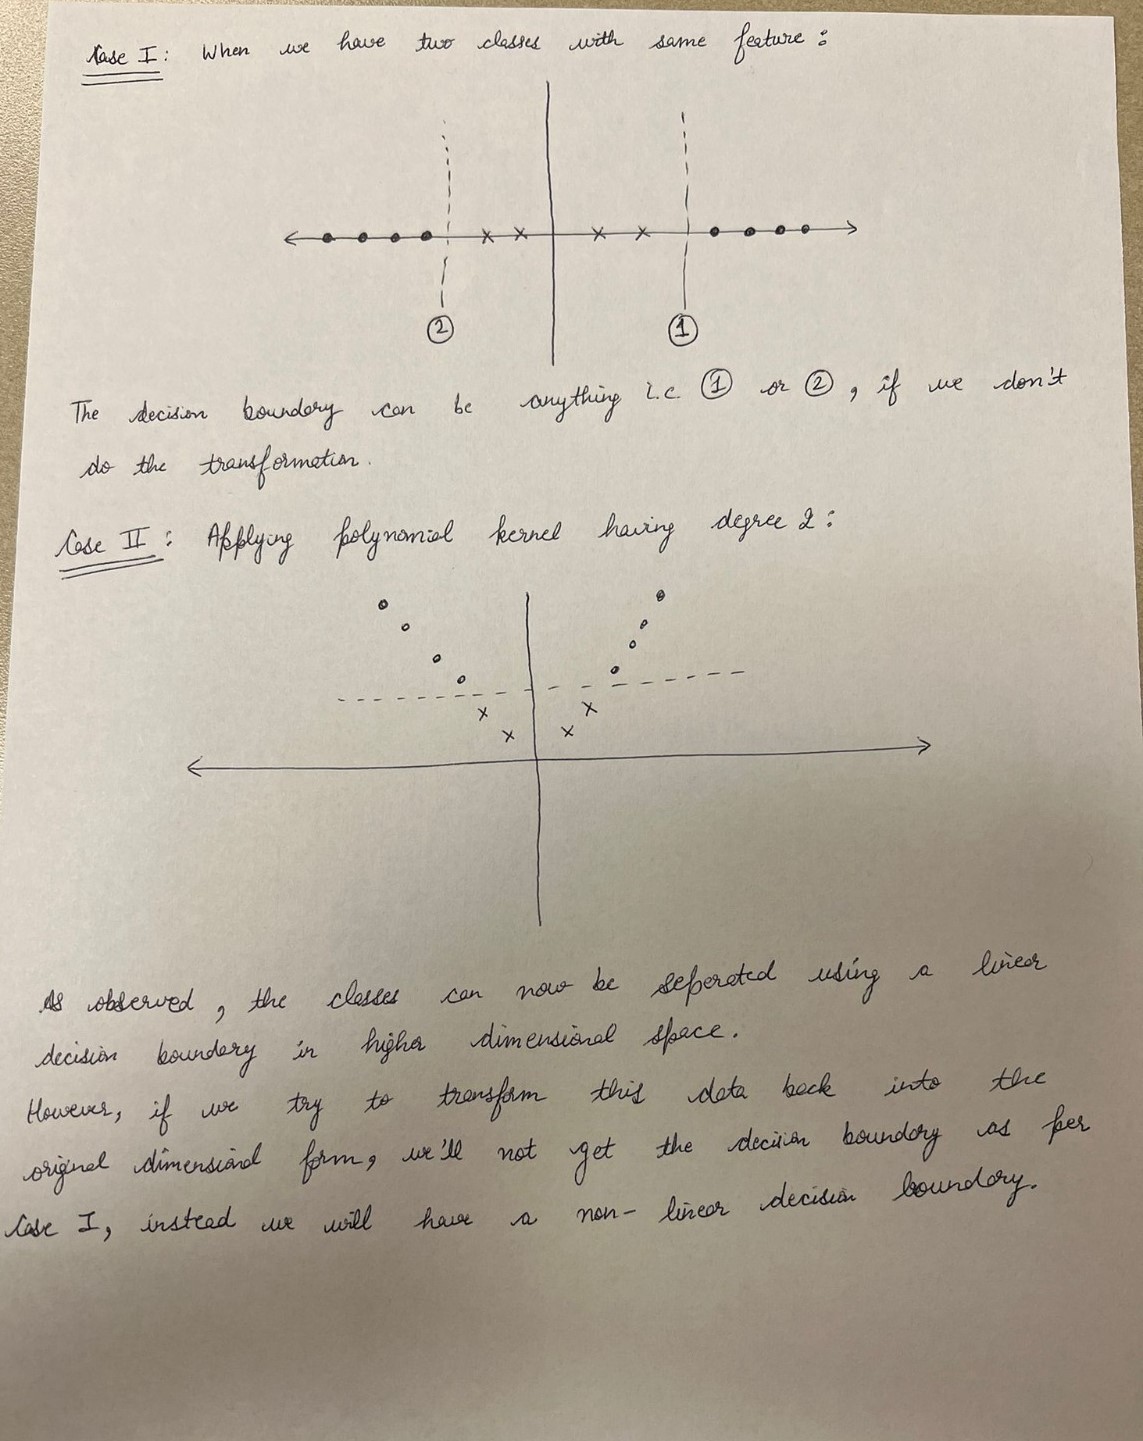 Case I: When we have two classes with same feature:
② ①
The decision boundary can be anything i.e ① or ②, if we don't
do the transformation.
Case II: Applying polynomial kernel having degree 2:
As observed, the classes can now be seperated using a linear
decision boundary in higher dimensional space.
However, if we try to transform this data back into the
original dimensional form, we'll not get the decision boundary as per
Case I, instead we will have a non-linear decision boundary.